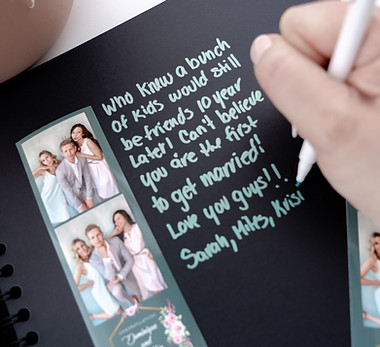 Who knew a bunch
of kids would still
be friends 10 year
Later! Can't believe
you are the first
to get married!
Love you guys!!
Sarah, Miles, Krist
Dominique
and